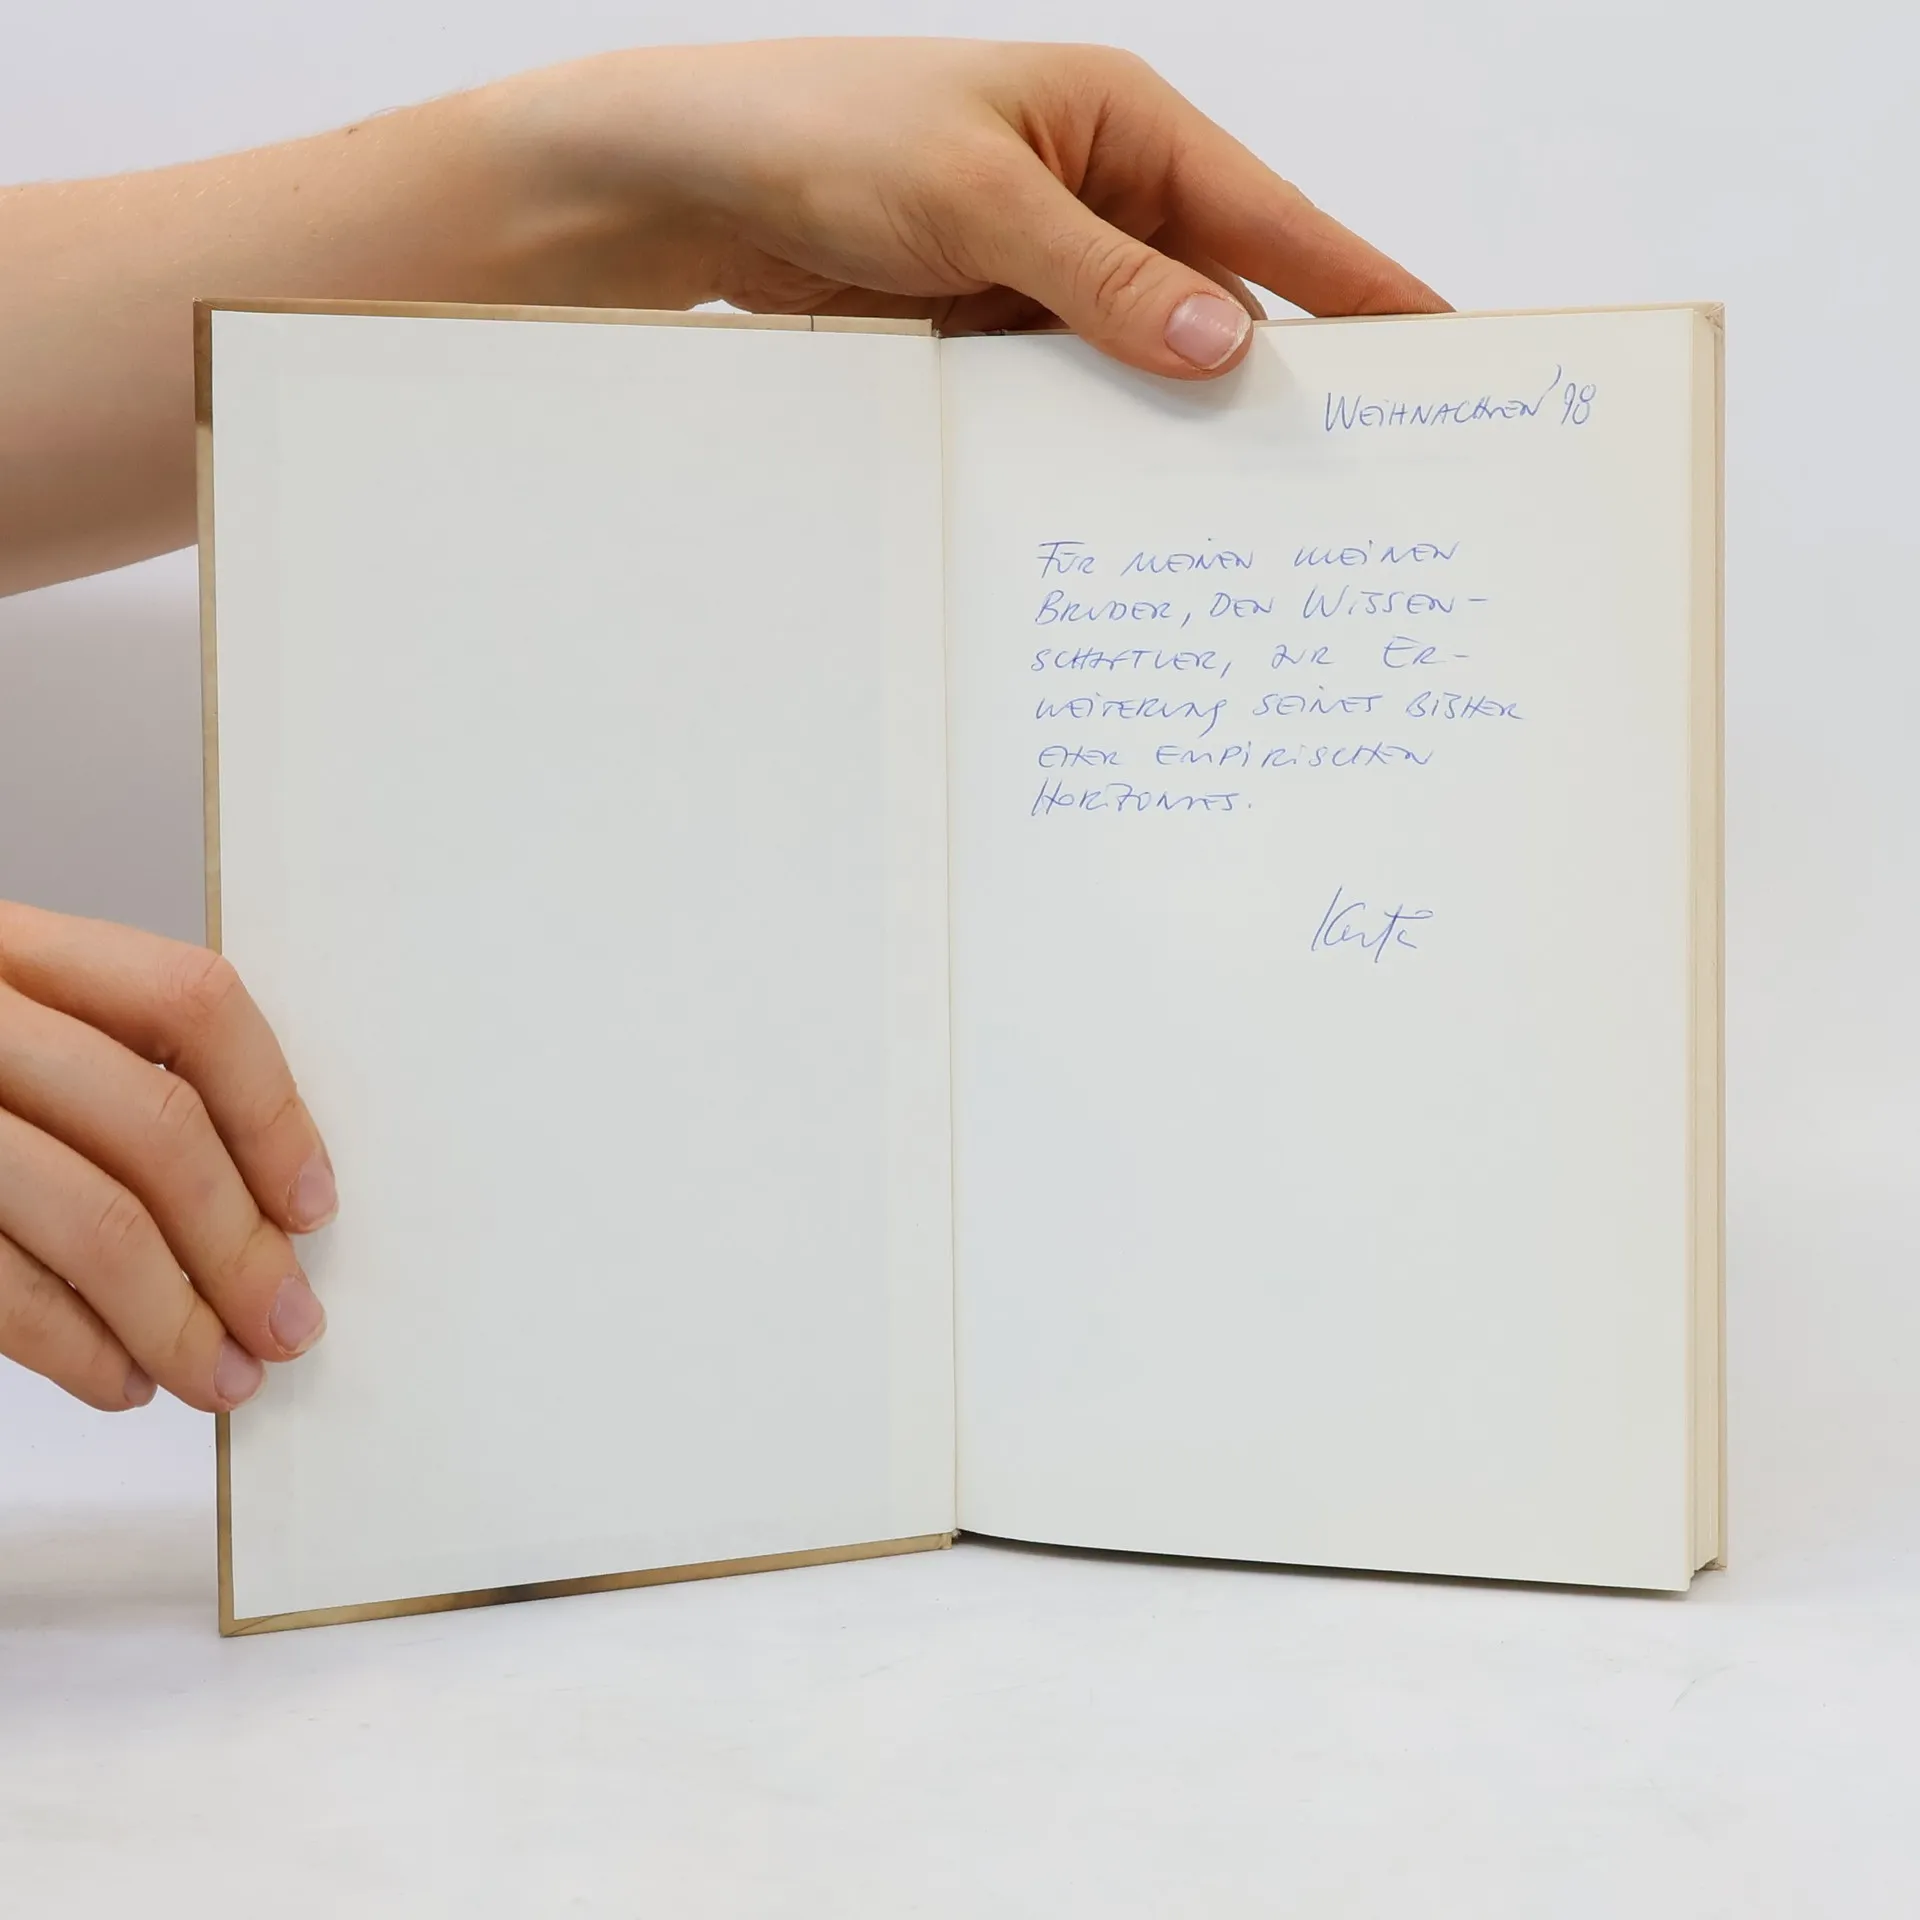 WEIHNACHTEN '98
FÜR MEINEN KLEINEN
BRUDER, DEN WISSEN-
SCHAFTLER, ZUR ER-
WEITERUNG SEINES BISHER
EHER EMPIRISCHEN
HORIZONTES.